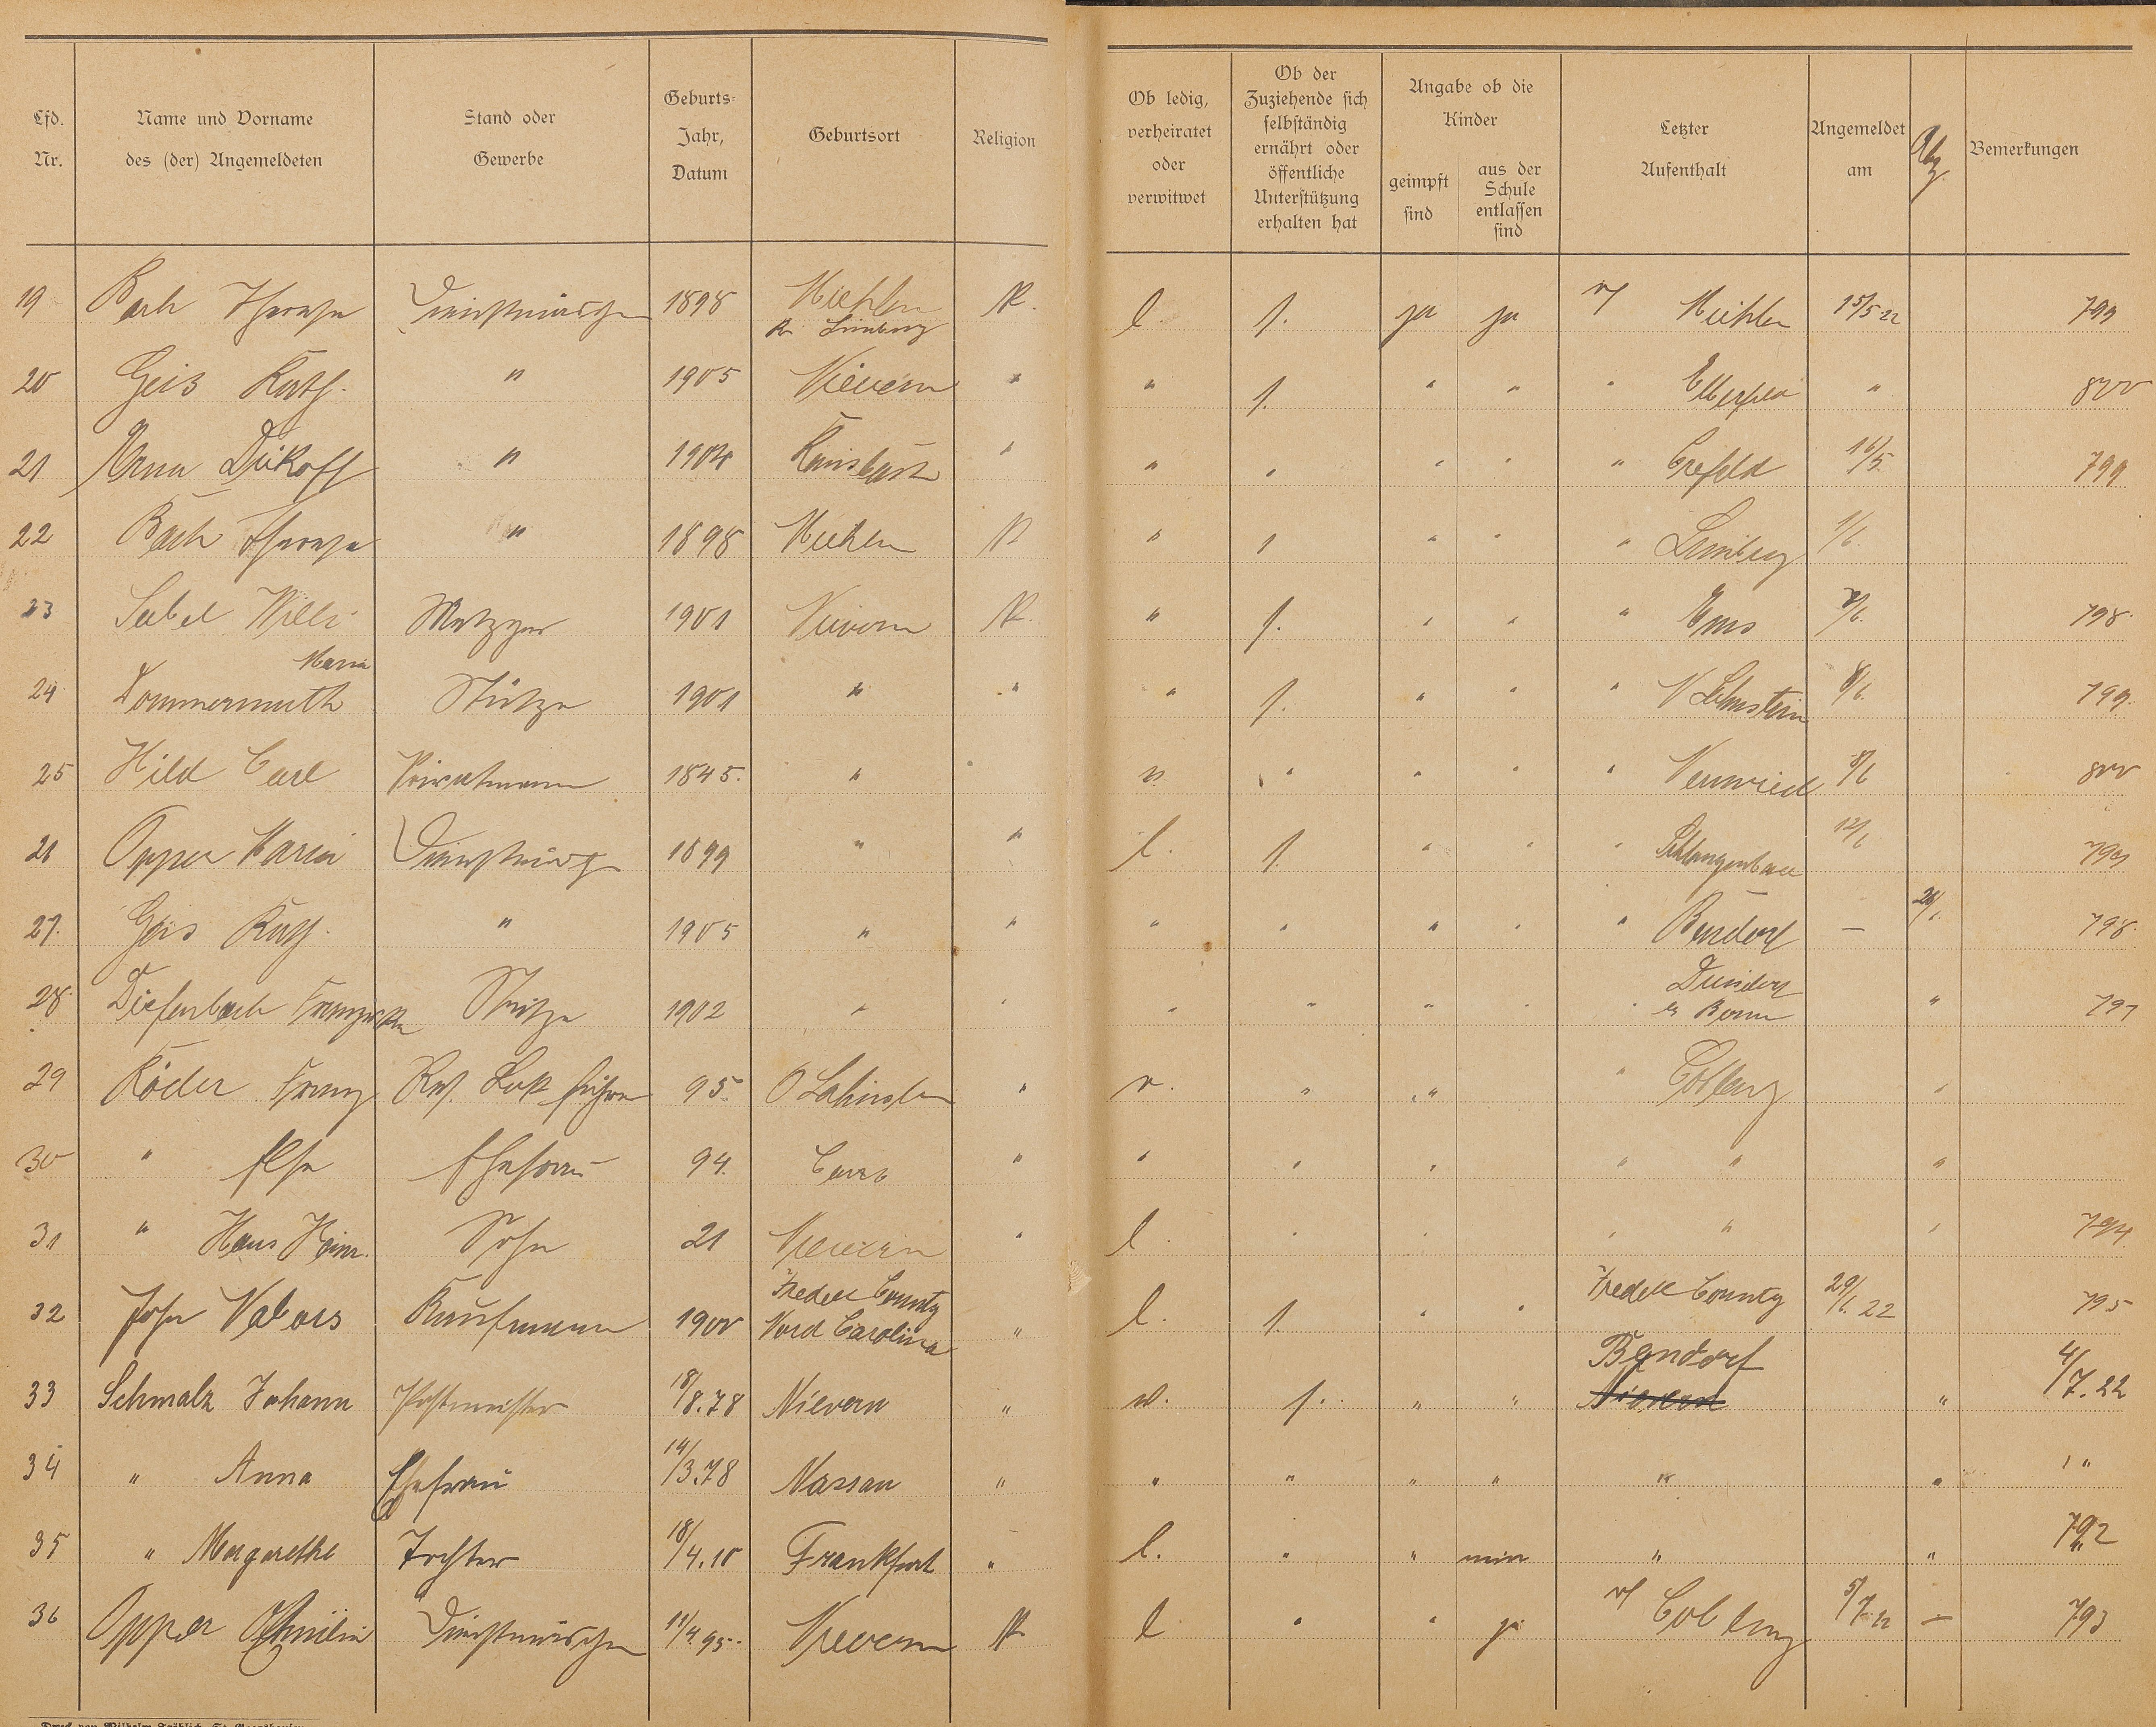 Lfd. Nr. Name und Vorname des (der) Angemeldeten Stand oder Gewerbe Geburts-Jahr, Datum Geburtsort Religion Ob ledig, verheiratet oder verwitwet Ob der Zuziehende sich selbständig ernährt oder öffentliche Unterstützung erhalten hat Angabe ob die Kinder geimpft sind aus der Schule entlassen sind Letzter Aufenthalt Angemeldet am Abg. Bemerkungen
19 Bach Therese Dienstmädchen 1898 Miehlen Kr. Limburg K. l. s. ja ja v/ Miehlen 15/5 22 799
20 Geis Kath. " 1905 Nievern " " s. " " " "  800
21 Anna " 1904 Ransbach " " " " " " Crefeld 16/5. 799
22 Bach Therese " 1898 Miehlen K " s " " " Limburg 1/6.
23 Sabel Willi Metzger 1901 Nievern K. " s. " " " Ems 7/6. 798
24 Dommermuth Maria Stütze 1901 " " " s. " " " N Lahnstein 8/6. 799.
25 Hild Carl Privatmann 1845. " " " " " " Neuwied 8/6 800
26 Opper Maria Dienstmädch 1899 " " l. s. " " " Schlangenbad 12/6 799
27. Geis Kath. " 1905 " " " " " " " Bendorf — 798.
28 Diefenbach Franziska Stütze 1902 " " " " " " " b/ Bonn " 797
29 Röder Franz Res. Lok führer 95. O Lahnstein " v. " " " Coblenz "
30 " Else Ehefrau 94. " " " " " " "
31 " Hans Heinr. Sohn 21 Nievern " l. " " " " " 794.
32 John Kaufmann 1900 Iredell County Nord Carolina " l. s. " " Iredell County 29/6. 22 795
33 Schmalz Johann Postmeister 18/8.78 Nievern " w. s. " " Bendorf Nievern " 4/7.22
34 " Anna Ehefrau 14/3.78 Nassau " " " " " " " "
35 " Margarethe Tochter 18/4.10 Frankfurt " l. " " nein " " 792
36 Opper Dienstmädchen 11/4 95. Nievern K l " " ja v/ Coblenz 5/7 22 — 793
Druck von Wilhelm Fröhlich, St. Goarshausen